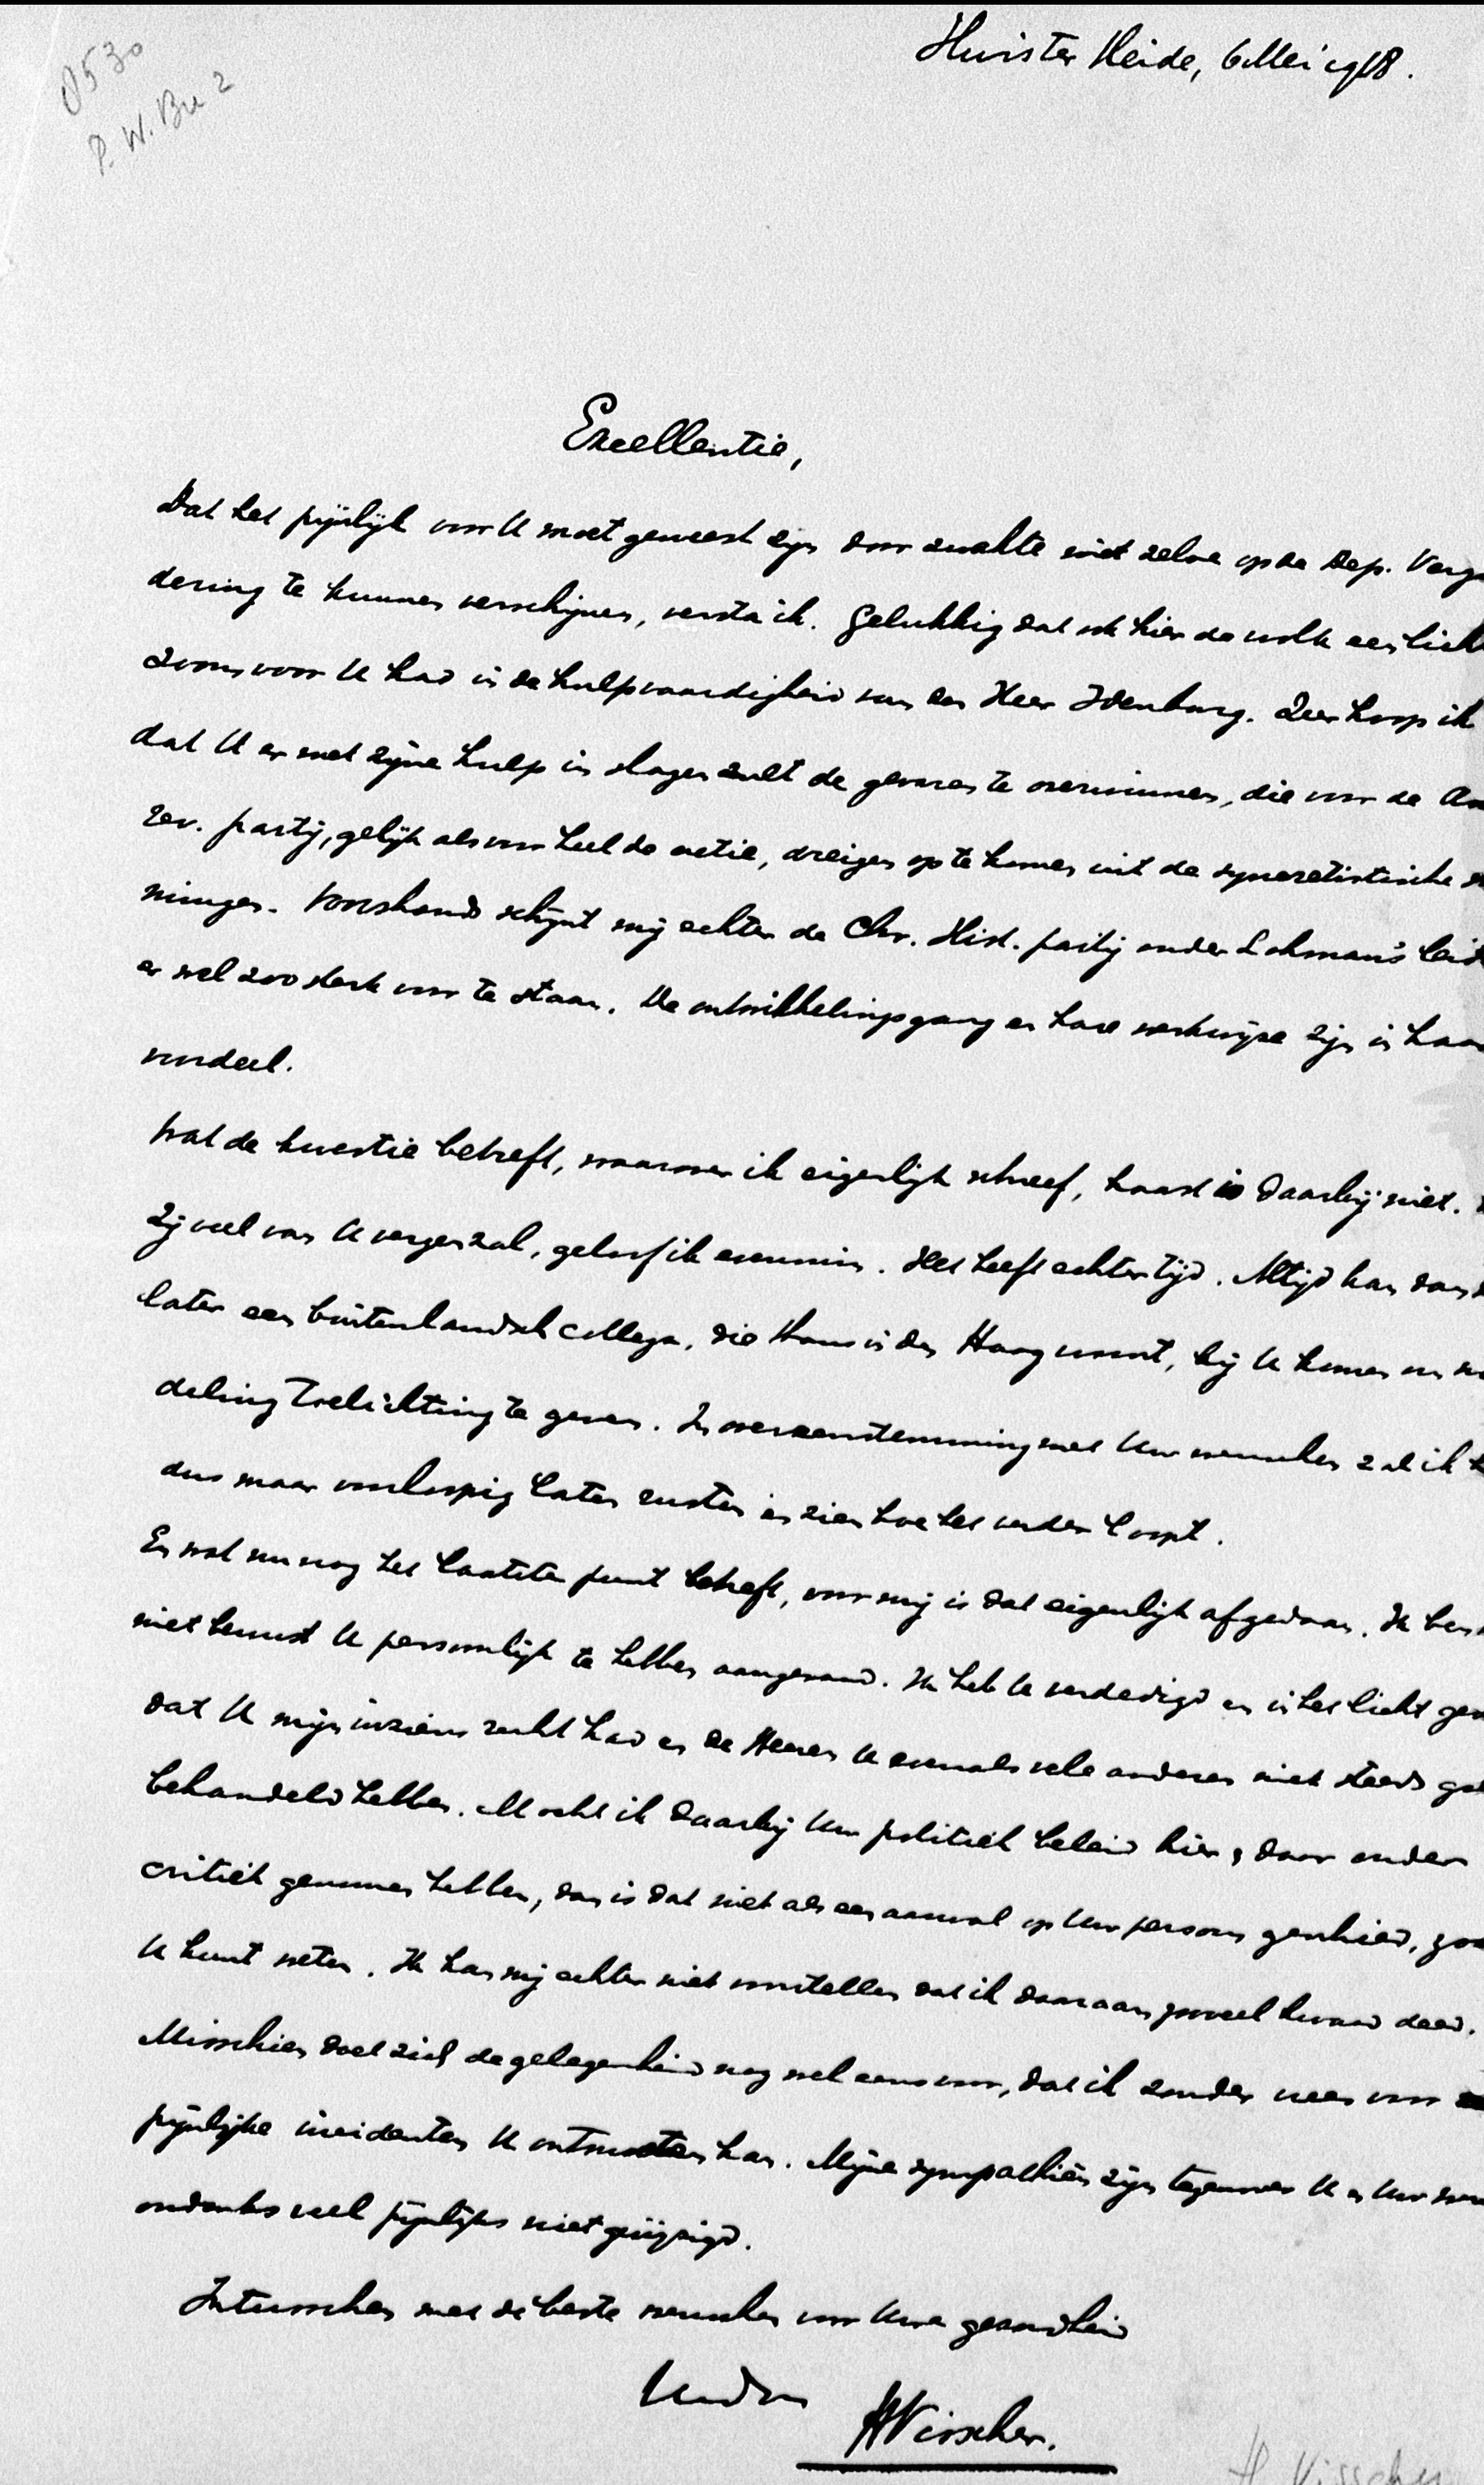 8530
P. W. Bu 2
Huister Heide, 6 Mei 1918.
Excellentie,
Dat het pijnlijk voor U moet geweest zijn door zwakte niet zelve op de Dep. Verga
dering te kunnen verschijnen, versta ik. Gelukkig dat ook hier de wolk een licht
zoom voor U had in de hulpvaardigheid van den Heer Idenburg. Zeer hoop ik
dat U er met zijne hulp in slagen zult de gevaren te overwinnen, die voor de An
rev. partij, gelijk als voor heel de actie, dreigen op te komen uit de syncretistische
ningen. Voorshands schijnt mij echter de Chr. Hist. partij onder Lohman's leid
er wel zoo sterk voor te staan. De ontwikkelingsgang en hare werkwijze zijn in haar
voordeel.
Wat de kwestie betreft, waarover ik eigenlijk schreef, haast is daarbij niet.
Zij veel van U vergen zal, geloof ik evenmin. Het heeft echter tijd. Altijd kan dan
later een buitenlandsch collega, die thans in den Haag woont, bij U komen om mo
deling toelichting te geven. In overeenstemming met Uw wenschen zal ik h
dus maar voorloopig laten rusten en zien hoe het verder loopt.
En wat nu nog het laatste punt betreft, voor mij is dat eigenlijk afgedaan. Ik ben
niet bewust U persoonlijk te hebben aangerand. Ik heb U verdedigd en in het licht ges
dat U mijns inziens recht had en de Heeren U evenals vele anderen niet steeds goed
behandeld hebben. Mocht ik daarbij Uw politiek beleid hier & daar onder
critiek genomen hebben, dan is dat niet als een aanval op Uw persoon geschied, zoo
U kunt weten. Ik kan mij echter niet voorstellen dat ik daaraan zooveel kwaad deed.
Misschien doet zich de gelegenheid nog wel eens voor, dat ik zonder vrees voor
pijnlijke incidenten U ontmoeten kan. Mijne sympathiën zijn tegenover U en Uw
ondanks veel pijnlijks niet gewijzigd.
Intusschen met de beste wenschen voor Uwe gezondheid
Uwdw
HVisscher.
H. Visscher